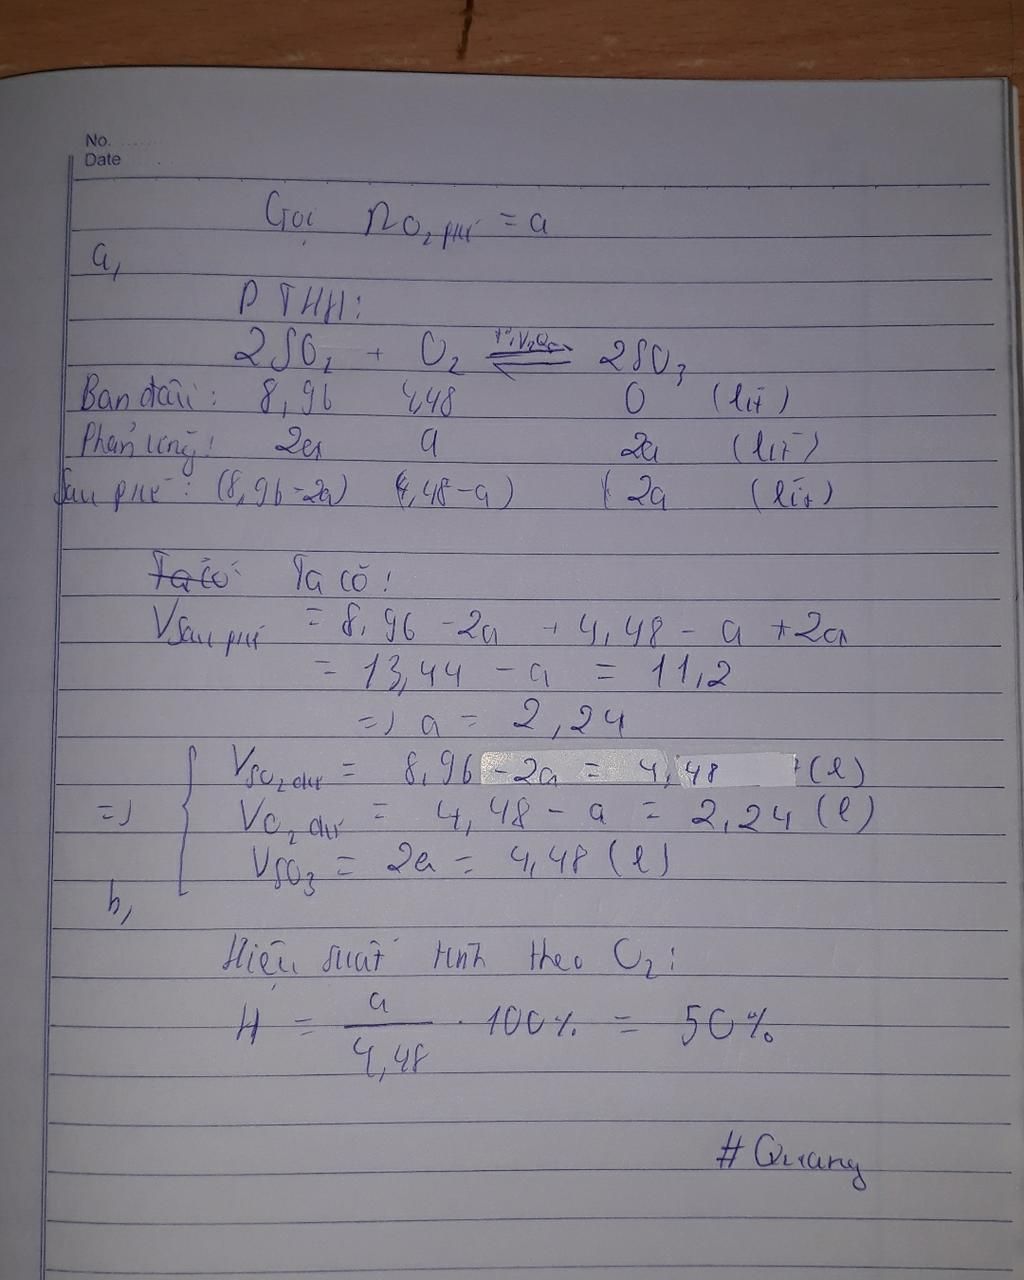 No.
Date
Gọi nO₂ pứ = a
a,
PTHH:
2SO₂ + O₂ t°, V₂O₅ ⇌ 2SO₃
Ban đầu: 8,96 4,48 0 (lít)
Phản ứng: 2a a 2a (lít)
Sau pứ: (8,96-2a) (4,48-a) 2a (lít)
Ta có Ta có:
Vsau pứ = 8,96 - 2a + 4,48 - a + 2a
= 13,44 - a = 11,2
=> a = 2,24
VSO₂ dư = 8,96 - 2a = 4,48 (l)
=> VO₂ dư = 4,48 - a = 2,24 (l)
VSO₃ = 2a = 4,48 (l)
b,
Hiệu suất tính theo O₂:
H = a/4,48 . 100% = 50%
# Quang